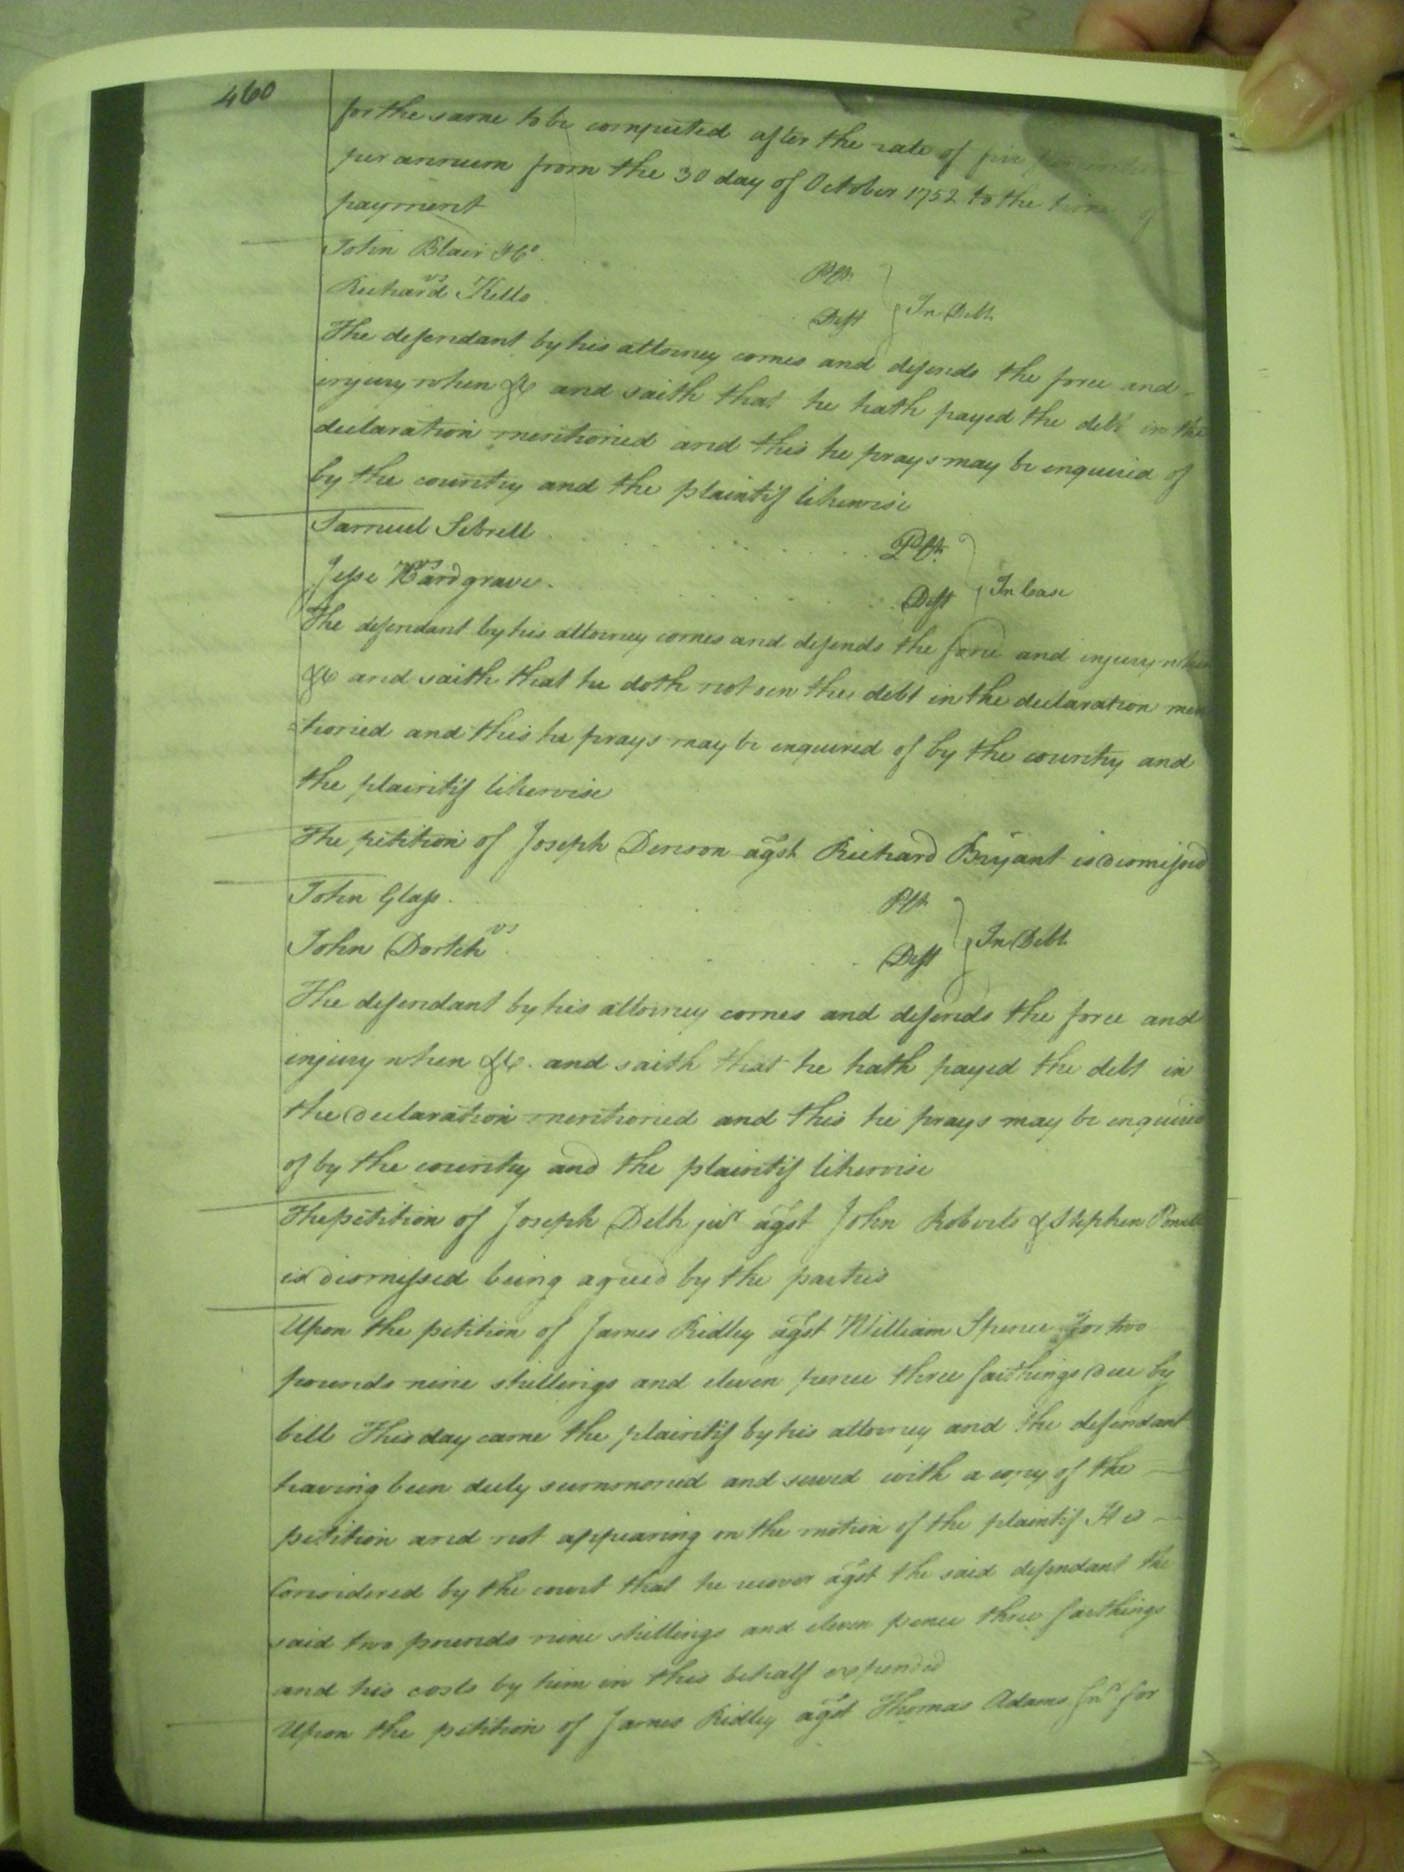 460
for the same to be computed after the rate of five
per annum from the 30 day of October 1752 to the time of
payment
John Blair &Co Plt
vs In Debt
Richard Kello Deft
The defendant by his attorney comes and defends the force and
injury when &c and saith that he hath payed the debt in the
declaration mentioned and this he prays may be enquired of
by the country and the plaintif likewise
Samuel Sebrell Plt
vs In Case
Jesse Hardgrave Deft
The defendant by his attorney comes and defends the force and injury when
&c and saith that he doth not own the debt in the declaration men
tioned and this he prays may be enquired of by the country and
the plaintif likewise
The petition of Joseph Denson agst Richard Bryant is dismissed
John Glass Plt
vs In Debt
John Dortch Deft
The defendant by his attorney comes and defends the force and
injury when &c. and saith that he hath payed the debt in
the declaration mentioned and this he prays may be enquired
of by the country and the plaintif likewise
The petition of Joseph Delk junr agst John Roberts & Stephen
is dismissed being agreed by the parties
Upon the petition of James Ridley agst William Spence for two
pounds nine shillings and eleven pence three farthings due by
bill This day came the plaintif by his attorney and the defendant
having been duly summoned and served with a copy of the
petition and not appearing on the motion of the plaintif It is
Considered by the court that he recover agst the said defendant the
said two pounds nine shillings and eleven pence three farthings
and his costs by him in this behalf expended
Upon the petition of James Ridley agst Thomas Adams Jnr for